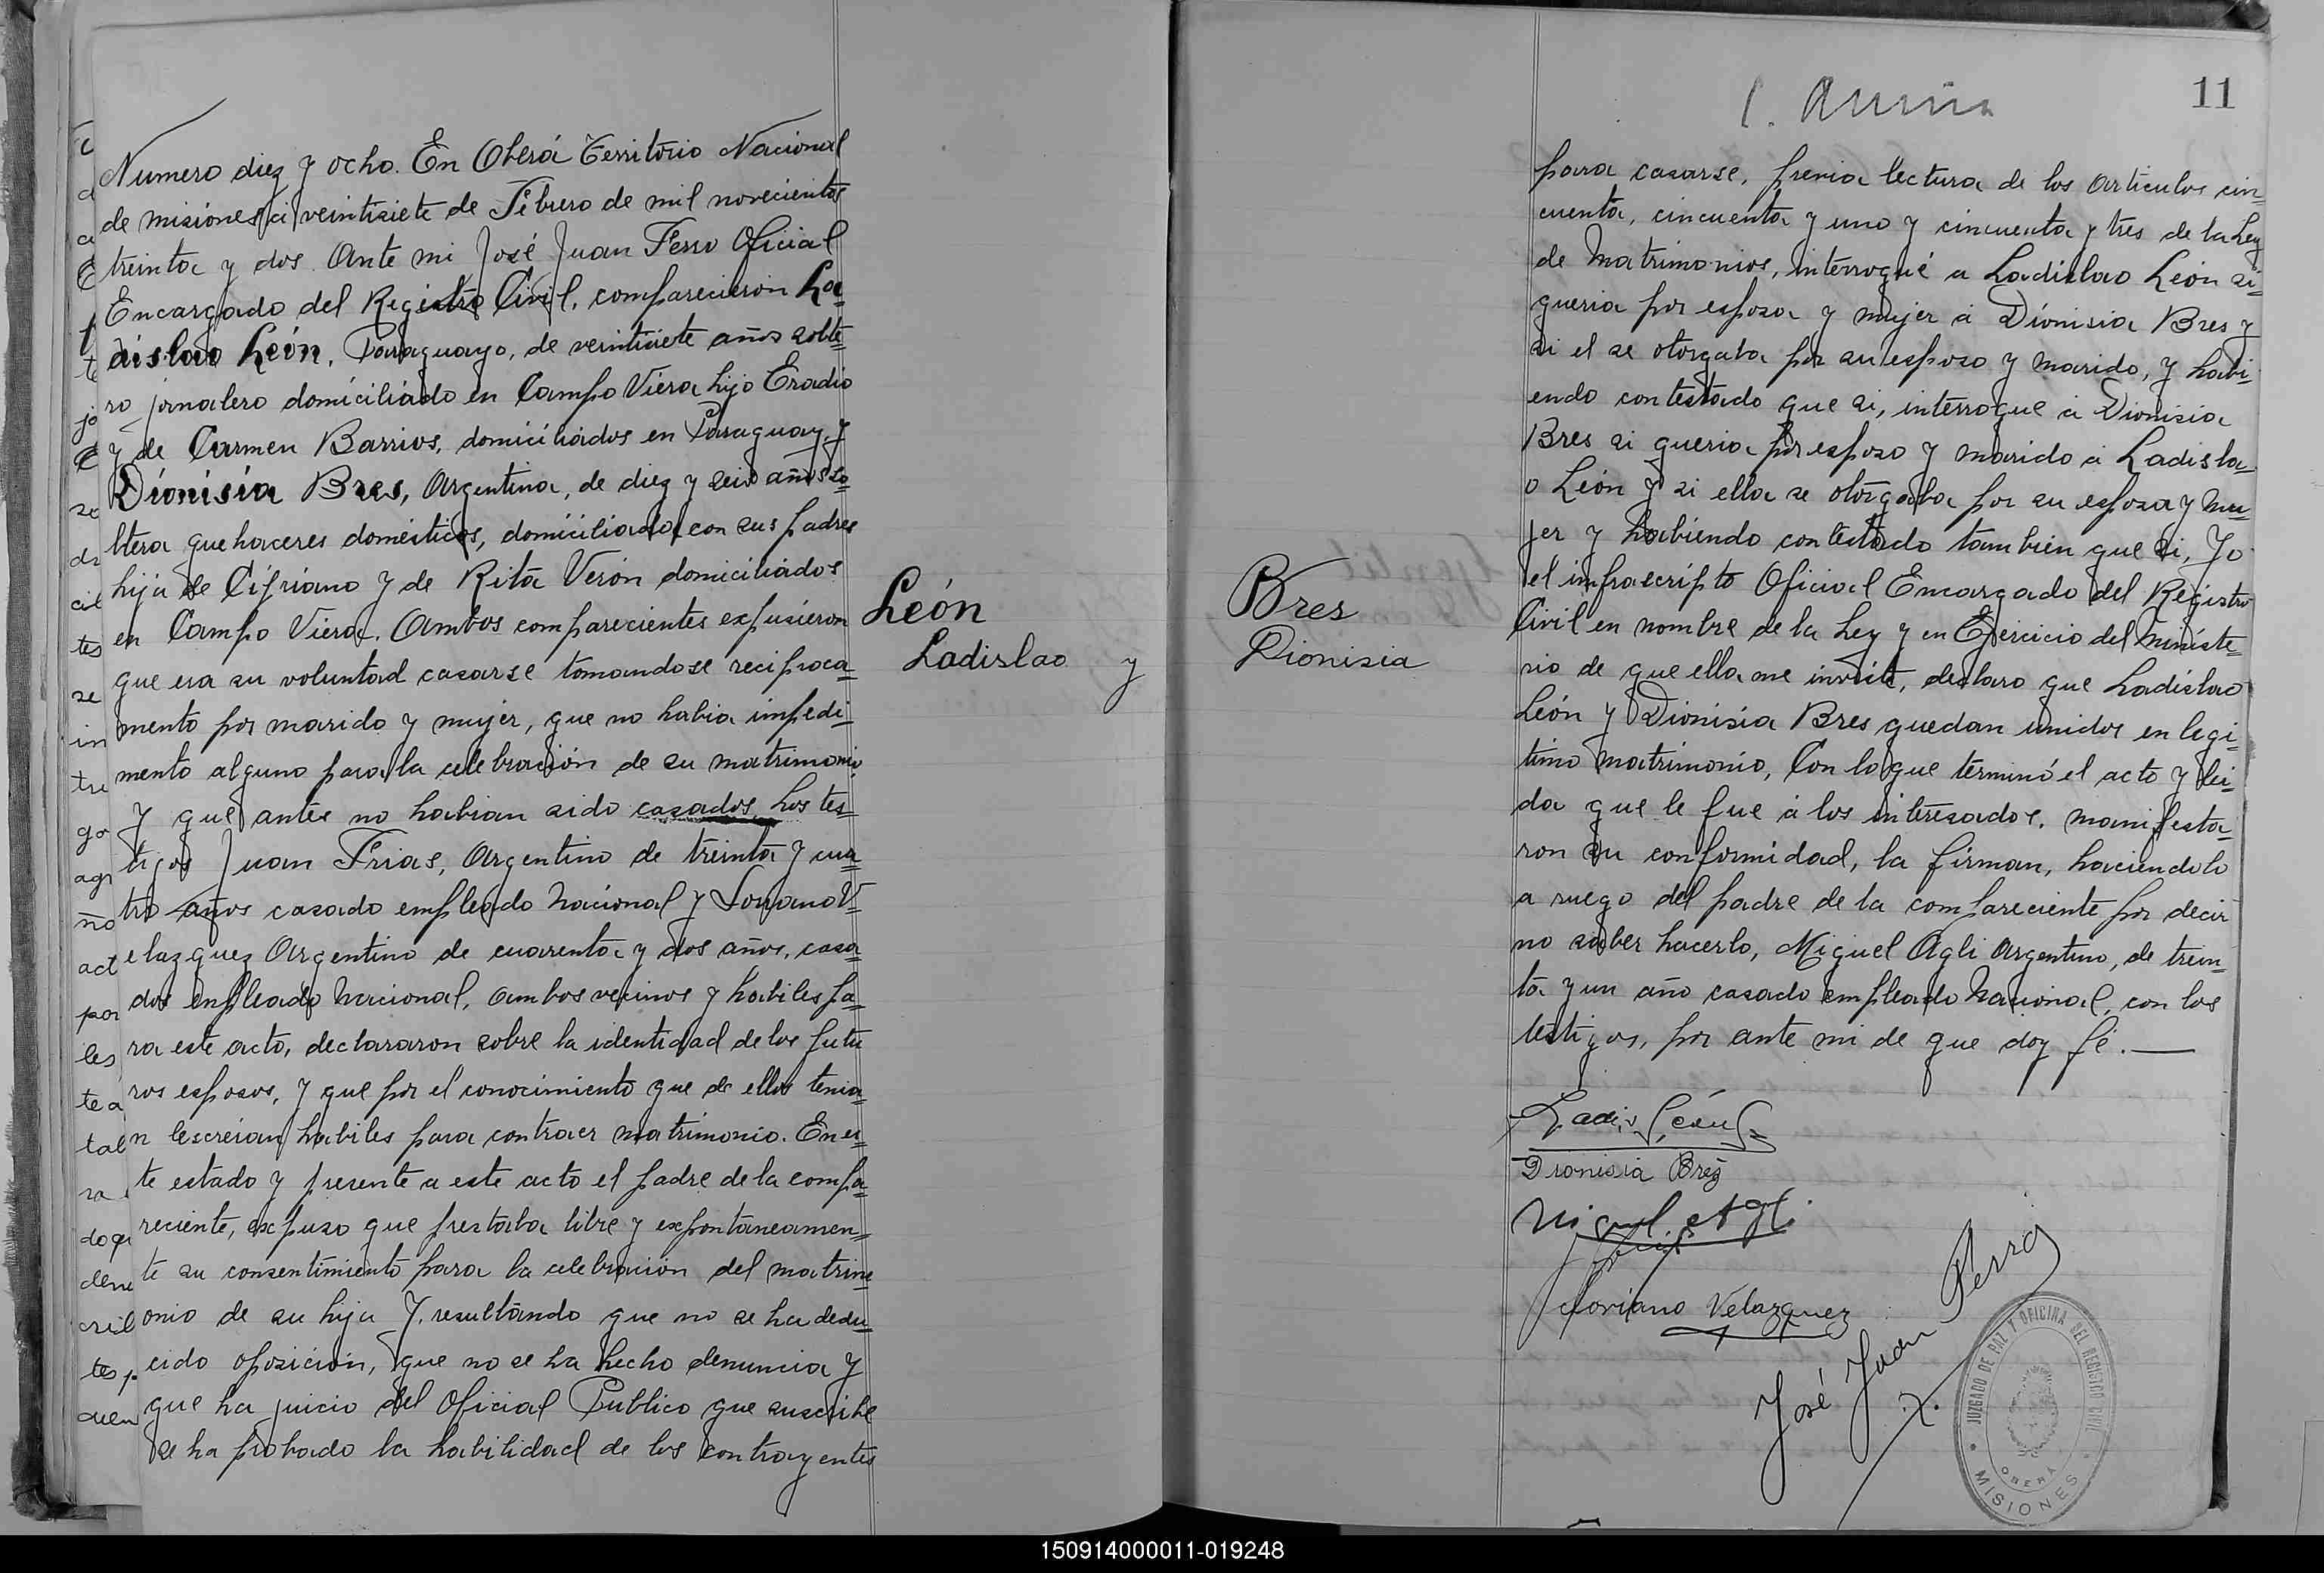 Numero diez y ocho. En Oberá Territorio Nacional
de misiones á veintisiete de Febrero de mil novecientos
treinta y dos. Ante mi José Juan Ferro Oficial
Encargado del Registro Civil, comparecieron La=
dislao León, Paraguayo, de veintisiete años solte=
ro jornalero domiciliado en Campo Viera hijo Eradio
y de Carmen Barrios, domiciliados en Paraguay y
Dionisia Bres, Argentina, de diez y seis años so=
ltera quehaceres domésticos, domiciliada con sus padres
hija de Cipriano y de Rita Verón domiciliados
en Campo Viera. Ambos comparecientes expusieron
que era su voluntad casarse tomandose reciproca=
mento por marido y mujer, que no habia impedi=
mento alguno para la celebración de su matrimonio
y que antes no habian sido casados Los tes=
tigos Juan Frias, Argentino de treinta y cua=
tro años casado empleado Nacional y Loriano V=
elazquez Argentino de cuarenta y dos años, casa=
dos empleado Nacional, ambos vecinos y habiles pa=
ra este acto, declararon sobre la identidad de los futu
ros esposos, y que por el conocimiento que de ellos tenia=
n lescreian habiles para contraer matrimonio. En es=
te estado y presente a este acto el padre de la compa=
reciente, expuso que prestaba libre y expontáneamen=
te su consentimiento para la celebración del matrim
onio de su hija y, resultando que no se ha dedu=
cido oposición, que no se ha hecho denuncia y
que ha juicio del Oficial Publico que suscribe
se ha probado la habilidad de los contrayentes
León
Ladislao y
11
Bres
Dionisia
para casarse, previa lectura de los articulos cin=
cuenta, cincuenta y uno y cincuenta y tres de la Ley
de Matrimonios, interrogué a Ladislao León si=
queria por esposa y mujer á Dionisia Bres y
si el se otorgaba por su esposo y marido, y habi=
endo contestado que si, interrogue á Dionisia
Bres si queria por esposo y marido á Ladisla=
o León y si ella se otorgaba por su esposa y mu=
jer y habiendo contestado tambien que si, Yo
el infrascripto Oficial Encargado del Registro
Civil en nombre de la Ley y en Ejercicio del Ministe=
rio de que ella me inviste, declaro que Ladislao
León y Dionisia Bres quedan unidos en legi=
timo matrimonio, Con lo que terminó el acto y lei=
da que le fue á los interesados, manifesta=
ron su conformidad, la firman, haciendolo
a ruego del padre de la compareciente por decir
no saber hacerlo, Miguel Agli Argentino, de trein=
ta y un año casado empleado Nacional, con los
testigos, por ante mi de que doy fé.
Ladis León
Dionisia Brés
Miguel Agli
Floriano Velazquez
José Juan Ferro
JUZGADO DE PAZ Y OFICINA DEL REGISTRO CIVIL
OBERÁ
MISIONES
150914000011-019248